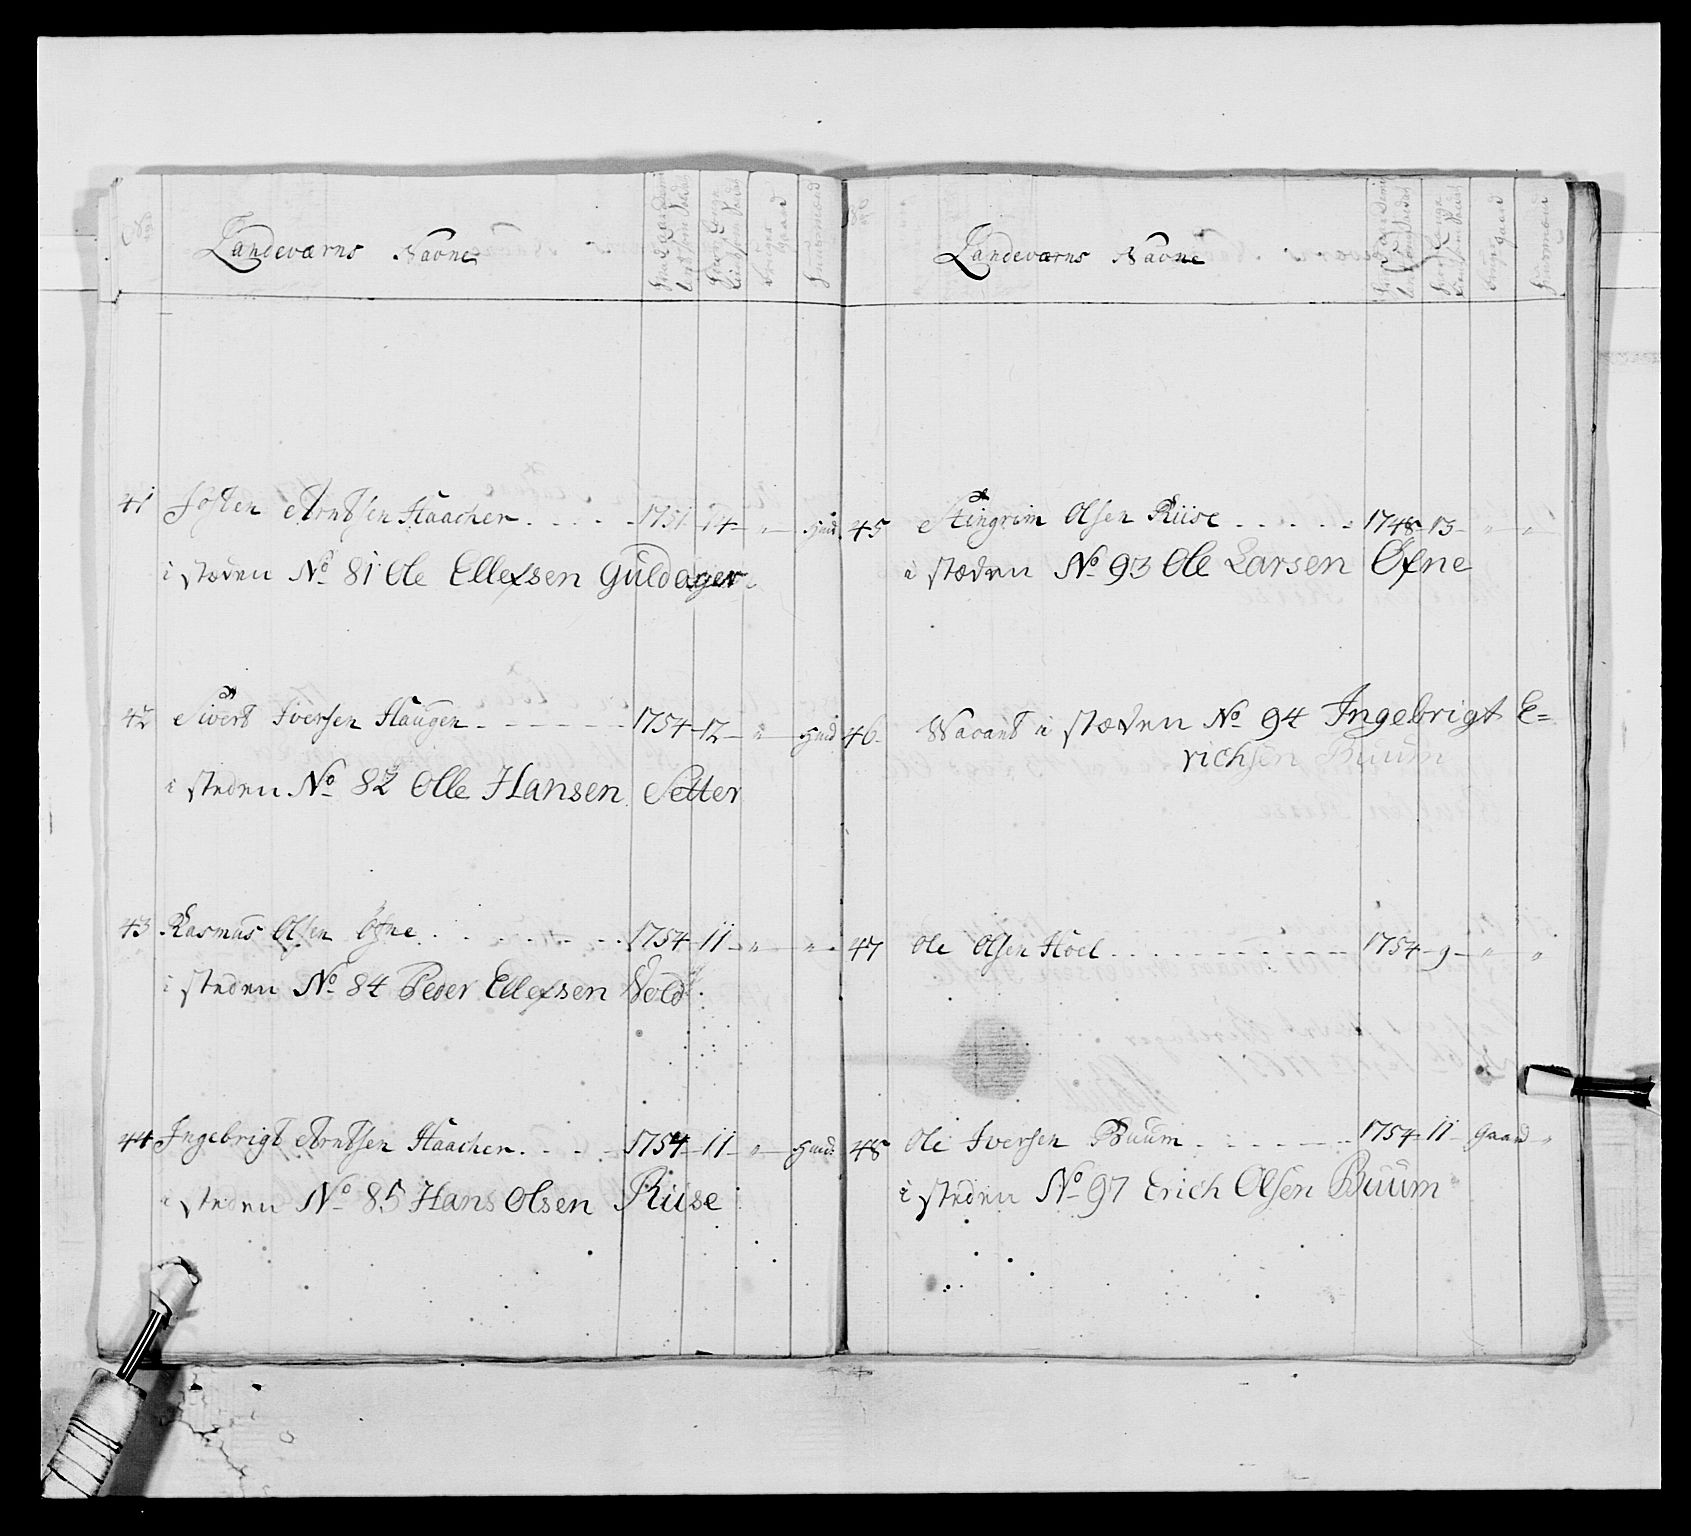 Landeværns Navne
41 Josten Arntsen Haacher. . . . . 1751 - 14 - " - Huusm.
i stæden No 81 Ole Ellefsen Guldager.
42 Sivert Iversen Haugen - - - - - - 1754 - 12 - " -
i steden No 82 Olle Hansen Setter
43 Rasmus Olsen Øfne. . . . . . . . 1754 - 11 - " - " -
i steden No 84 Peder Ellefsen Vold.
44 Ingebrigt Arntsen Haacher. . . . 1754 - 11 - " -
i steden No 85 Hans Olsen Riise
Landeværns Navne
45 Stingrim Olsen Riise . . . . . . 1748 - 13 - " - "
i stæden No 93 Ole Larsen Øfne
46. Vacant i stæden No 94 Ingebrigt E=
richsen Buum
47 Ole Olsen Hoel. . . . . . . . . . 1754 - 9 - " - "
48 Ole Iversen Buum . . . . . . 1754 - 11 - Gaard "
i steden No 97 Erich Olsen Buum